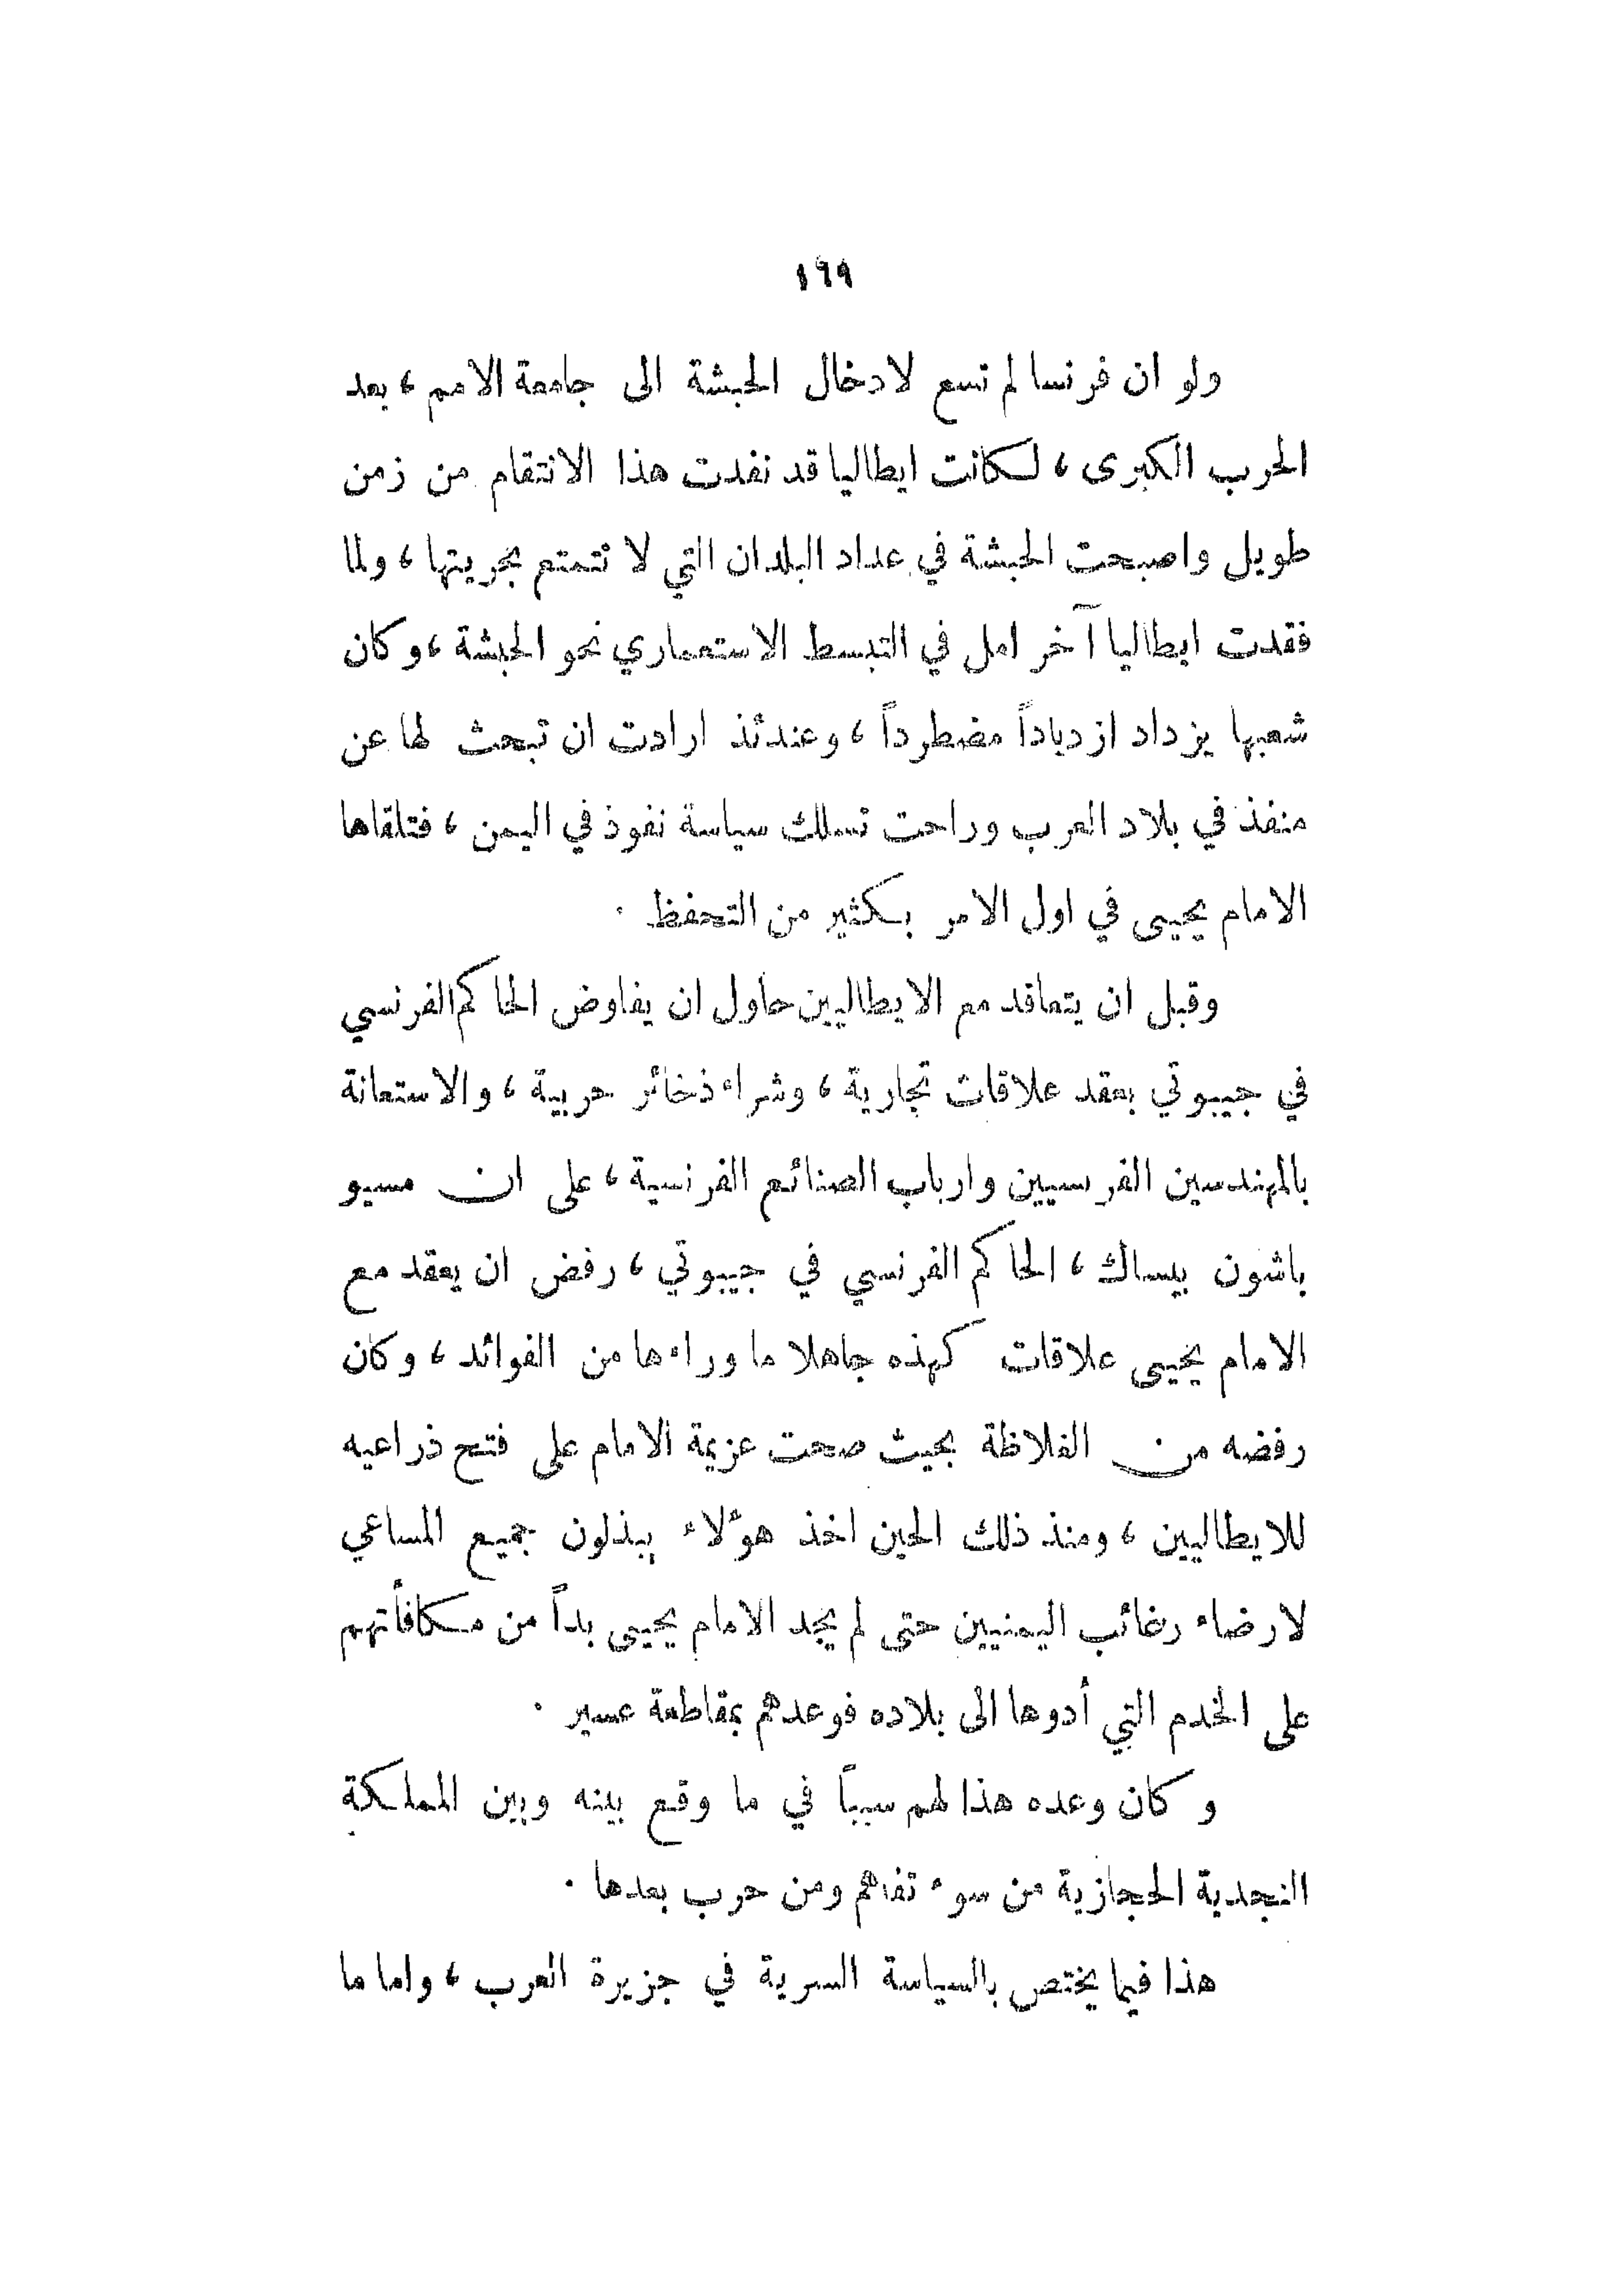 ١٩٩
ولو ان فرنسا لم تسع لادخال الحبشة الى جامعة الامم ، بعد
الحرب الكبرى ، لكانت ايطاليا قد نفدت هذا الانتقام من زمن
طويل واصبحت الحبشة في عداد البلدان التي لا تتمتع بحريتها ، ولما
فقدت ايطاليا آخر امل في التبسط الاستعماري نحو الحبشة ، وكان
شعبها يزداد ازدياداً مضطرداً ، وعندئذ ارادت ان تبحث لها عن
منفذ في بلاد العرب وراحت تسلك سياسة نفوذ في اليمن ، فتلقاها
الامام يحيى في اول الامر بكثير من التحفظ .
وقبل ان يتعاقد مع الايطاليين حاول ان يفاوض الحاكم الفرنسي
في جيبوتي بعقد علاقات تجارية ، وشراء ذخائر حربية ، والاستعانة
بالمهندسين الفرسيين وارباب الصنائع الفرنسية ، على ان مسيو
باشون بيساك ، الحاكم الفرنسي في جيبوتي ، رفض ان يعقد مع
الامام يحيى علاقات كهذه جاهلا ما وراءها من الفوائد ، وكان
رفضه من الغلاظة بحيث صحت عزيمة الامام على فتح ذراعيه
للايطاليين ، ومنذ ذلك الحين اخذ هؤلاء يبذلون جميع المساعي
لارضاء رغائب اليمنيين حتى لم يجد الامام يحيى بداً من مكافأتهم
على الخدم التي أدوها الى بلاده فوعدهم بمقاطعة عسير .
وكان وعده هذا لهم سبباً في ما وقع بينه وبين المملكة
النجدية الحجازية من سوء تفاهم ومن حرب بعدها .
هذا فيما يختص بالسياسة السرية في جزيرة العرب ، واما ما